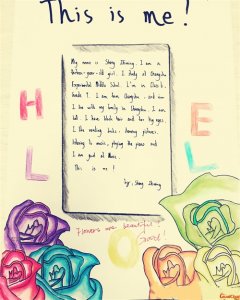 This is me!
My name is Shang Zhirong. I am a
thirteen-year-old girl. I study at Chengdu
Experimental Middle School. I'm in Class 6,
Grade 7. I am from Chengdu, and now
I live with my family in Chengdu. I am
tall. I have black hair and big eyes.
I like reading books, drawing pictures,
listening to music, playing the piano and
I am good at Music.
This is me!
by: Shang Zhirong
H
E
L
L
O
Flowers are beautiful!